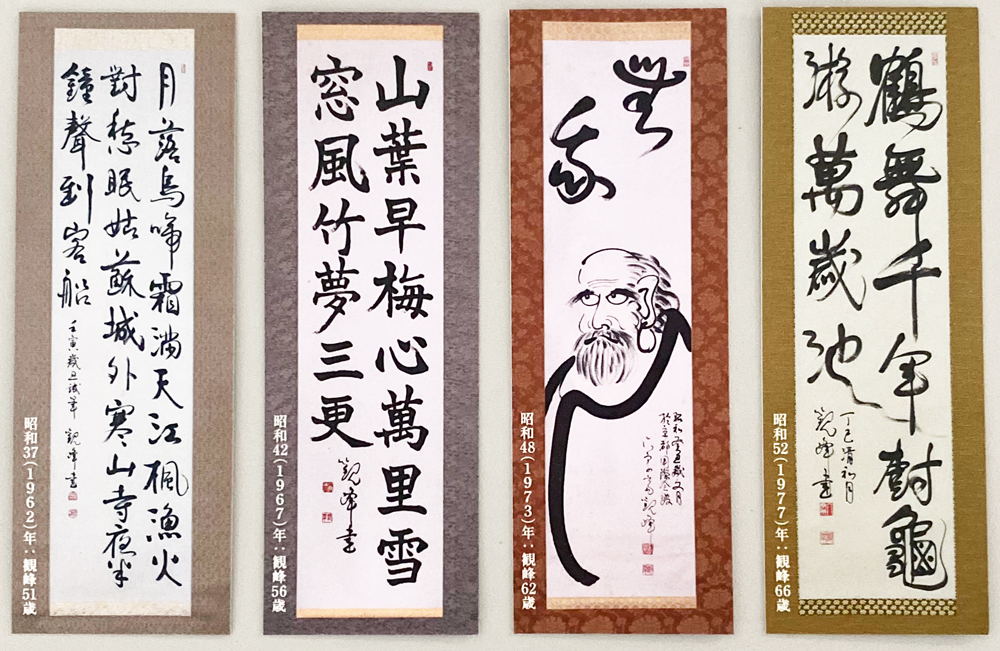 月落烏啼霜満天江楓漁火
對愁眠姑蘇城外寒山寺夜半
鐘聲到客船
壬寅歳旦試筆 觀峰書
昭和37(1962)年:観峰51歳
山葉早梅心萬里雪
窓風竹夢三更
觀峰書
昭和42(1967)年:観峰56歳
無
我
昭和癸丑歳文月
於京都国際会館
觀峰
昭和48(1973)年:観峰62歳
鶴舞千年樹龜
游萬歳池
丁巳清和月
觀峰書
昭和52(1977)年:観峰66歳